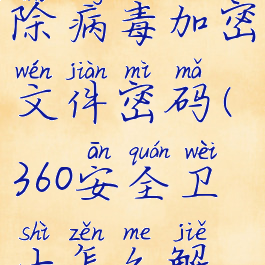 除病毒加密
wén jiàn mì mǎ
文件密码(
ān quán wèi
360安全卫
shì zěn me jiě
士怎么解